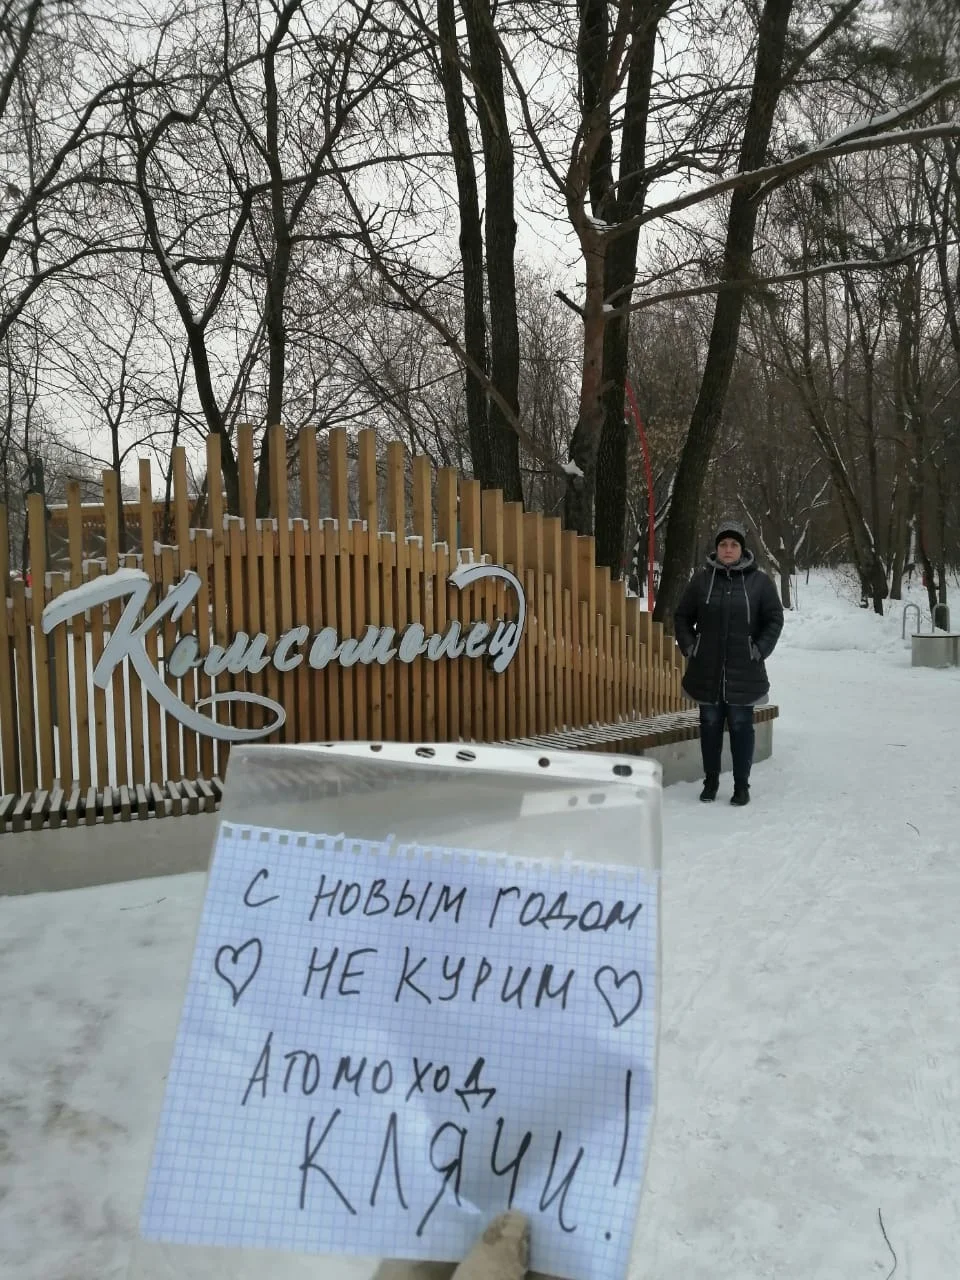 Комсомолец
С НОВЫМ ГОДОМ
♡ НЕ КУРИМ ♡
АТОМОХОД
КЛЯЧИ!